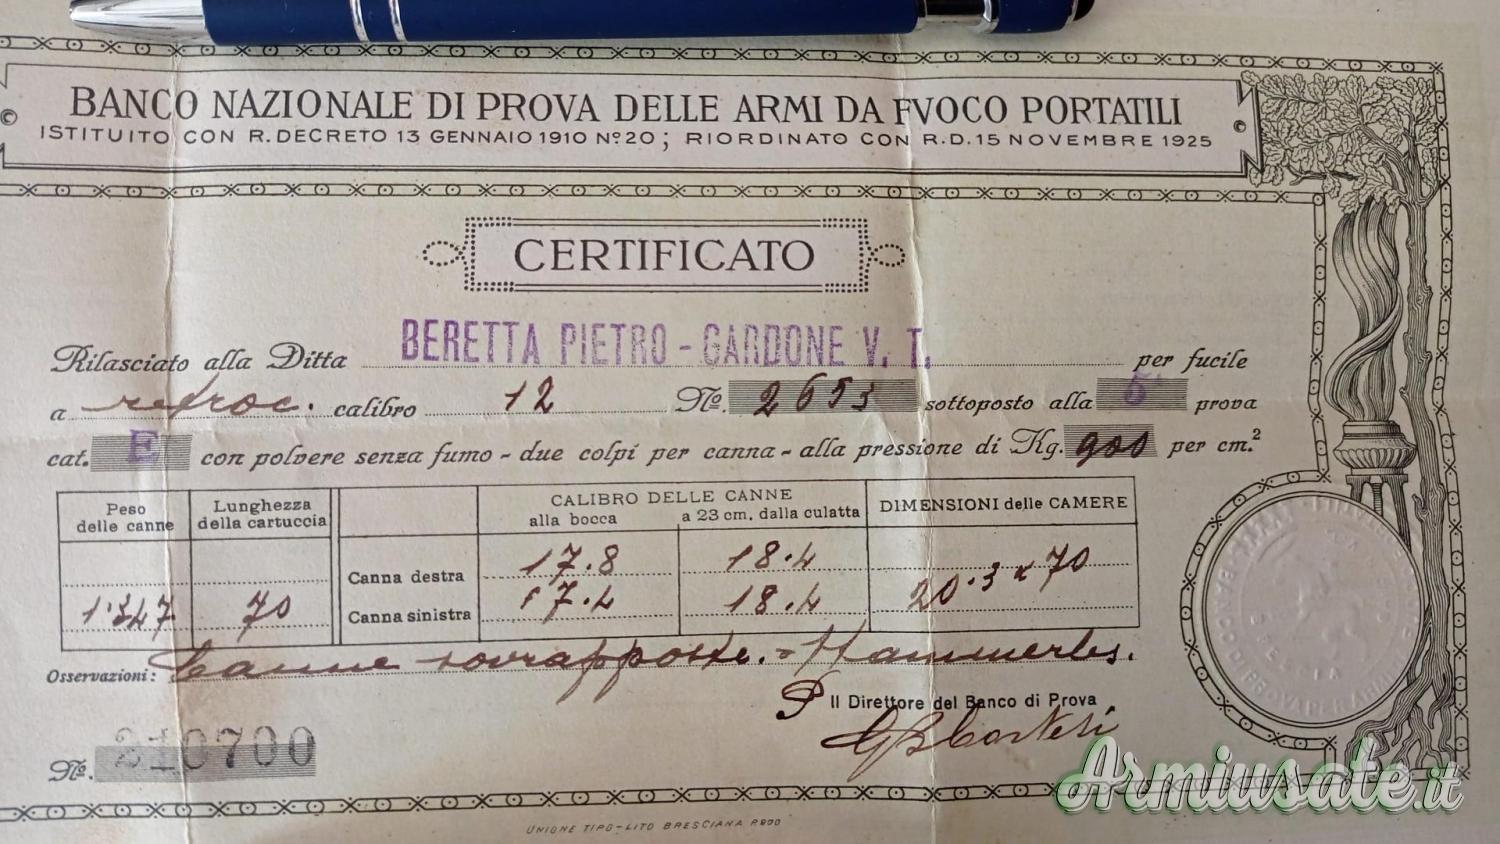 BANCO NAZIONALE DI PROVA DELLE ARMI DA FVOCO PORTATILI
ISTITUITO CON R. DECRETO 13 GENNAIO 1910 Nº 20; RIORDINATO CON R.D. 15 NOVEMBRE 1925
CERTIFICATO
Rilasciato alla Ditta BERETTA PIETRO - GARDONE V. T. per fucile
a retroc. calibro 12 Nº. 2653 sottoposto alla 5ª prova
cat. E con polvere senza fumo - due colpi per canna - alla pressione di Kg. 900 per cm.²
Peso delle canne Lunghezza della cartuccia CALIBRO DELLE CANNE DIMENSIONI delle CAMERE
alla bocca a 23 cm. dalla culatta
Canna destra 17.8 18.4 20.3 x 70
1.347 70 Canna sinistra 17.4 18.4
Osservazioni: Canne sovrapposte. = Hammerles.
P Il Direttore del Banco di Prova
Nº. 210700
UNIONE TIPO-LITO BRESCIANA
Armiusate.it